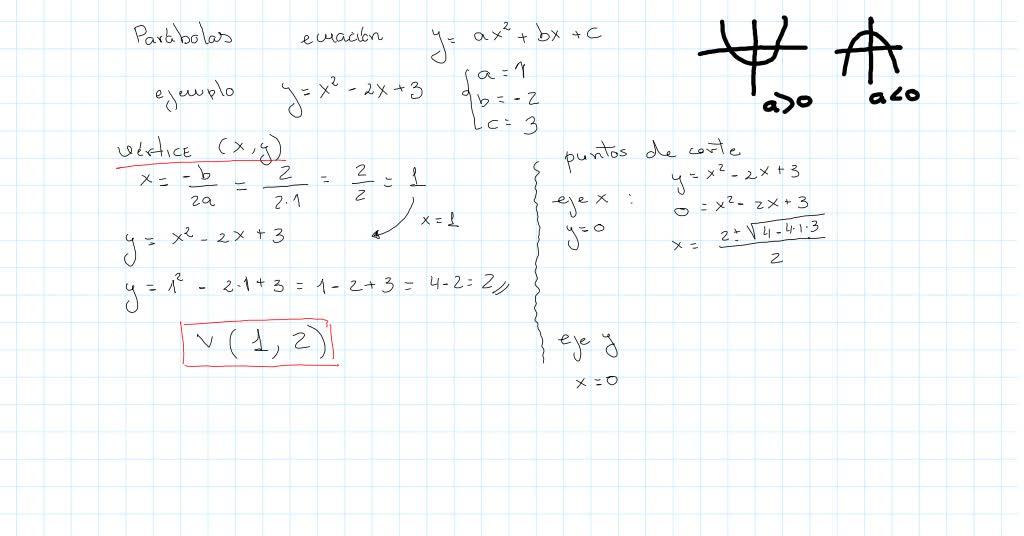 Parábolas ecuación y = ax² + bx + c
ejemplo y = x² - 2x + 3 { a = 1
b = -2
c = 3
a>0 a<0
vértice (x,y)
x = -b/2a = 2/2·1 = 2/2 = 1
x = 1
y = x² - 2x + 3
y = 1² - 2·1 + 3 = 1 - 2 + 3 = 4 - 2 = 2//
V (1, 2)
puntos de corte
y = x² - 2x + 3
eje x : 0 = x² - 2x + 3
y = 0 x = 2 ± √4 - 4·1·3 / 2
eje y
x = 0